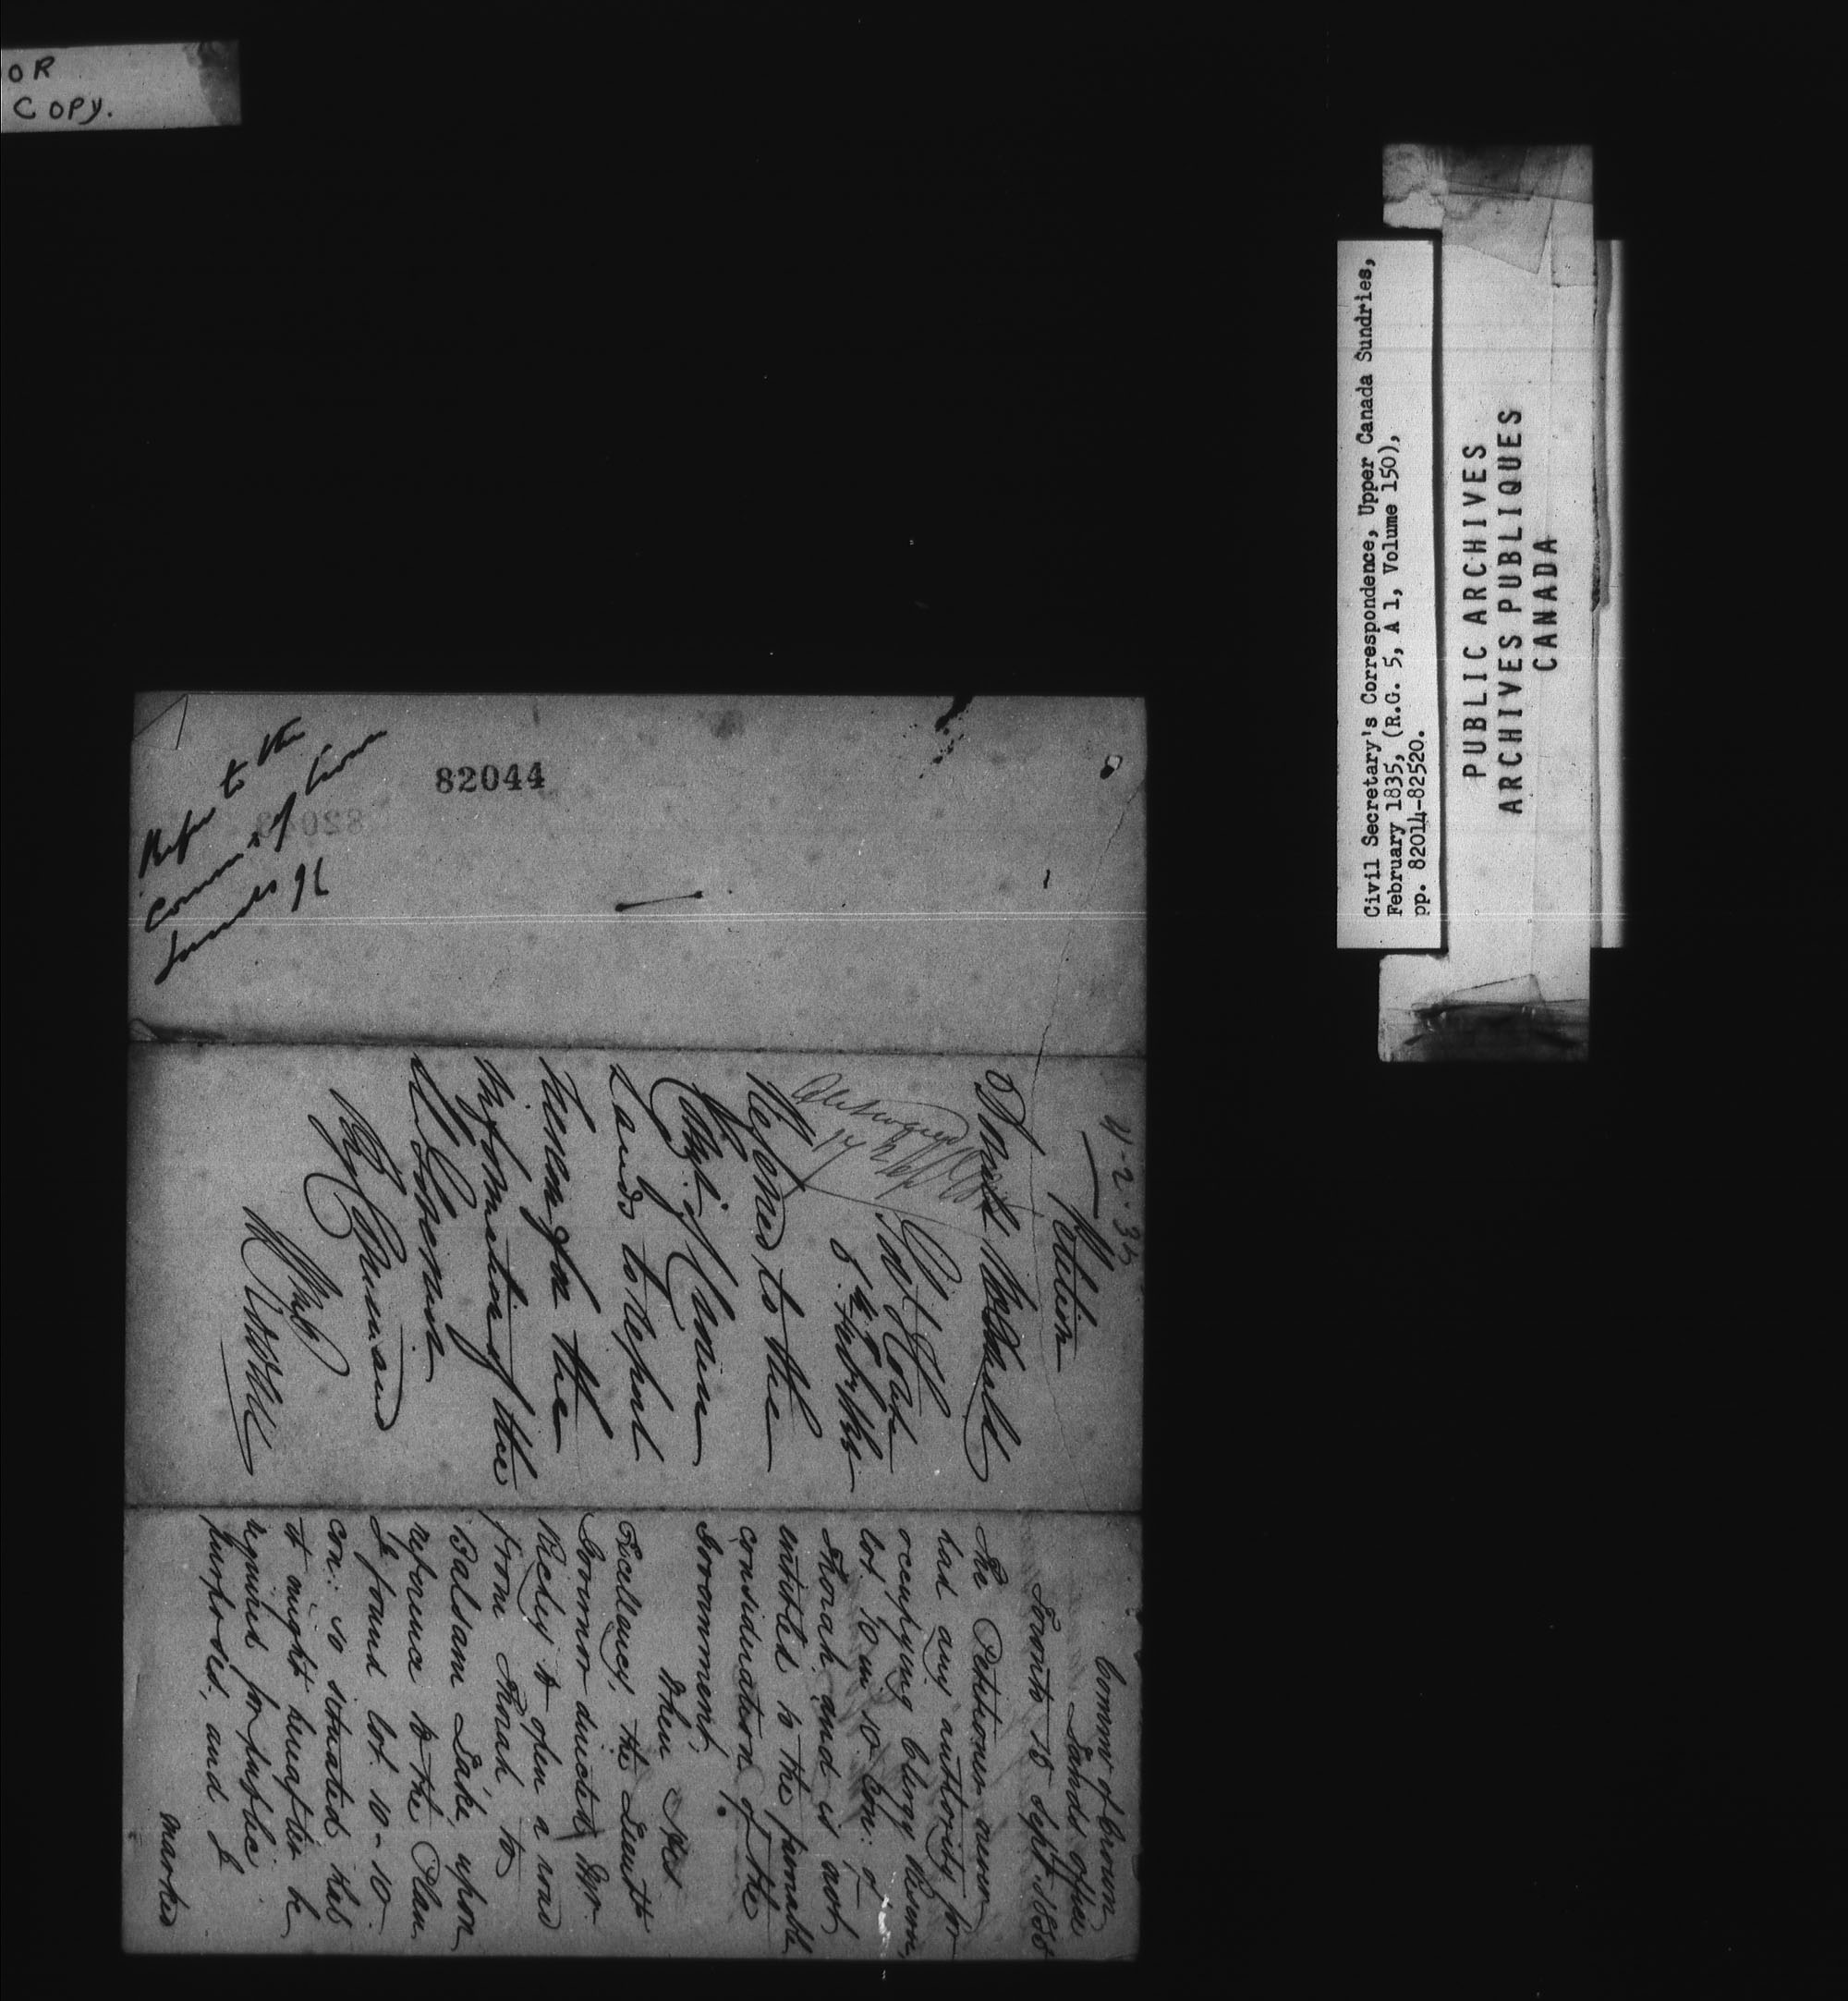 OR
COPY.
Civil Secretary's Correspondence, Upper Canada Sundries,
February 1835, (R.G. 5, A 1, Volume 150),
pp. 82014-82520.
PUBLIC ARCHIVES
ARCHIVES PUBLIQUES
CANADA
82044
Refer to the
Commr of Crown
Lands
4-2-35
Petition
Govt House
5th Feby
Referred to the
Commr of Crown
Lands to report
hereon for the
information of the
Lt Governor
By Command
Wm Rowan
Commr of Crown
Lands Office
Toronto 18 Sept. 1835
The Petitioner never
had any authority for
occupying Clergy Reserve
lot 10 in 10 Con: of
Thorah and is not
entitled to the favorable
consideration of the
Government.
When His
Excellency, the Lieut
Governor directed Mr.
Richey to open a road
from Thorah to
Balsam Lake, upon
reference to the Plan
I found lot 10-10.
con: so situated that
it might hereafter be
required for public
purposes, and I
marked